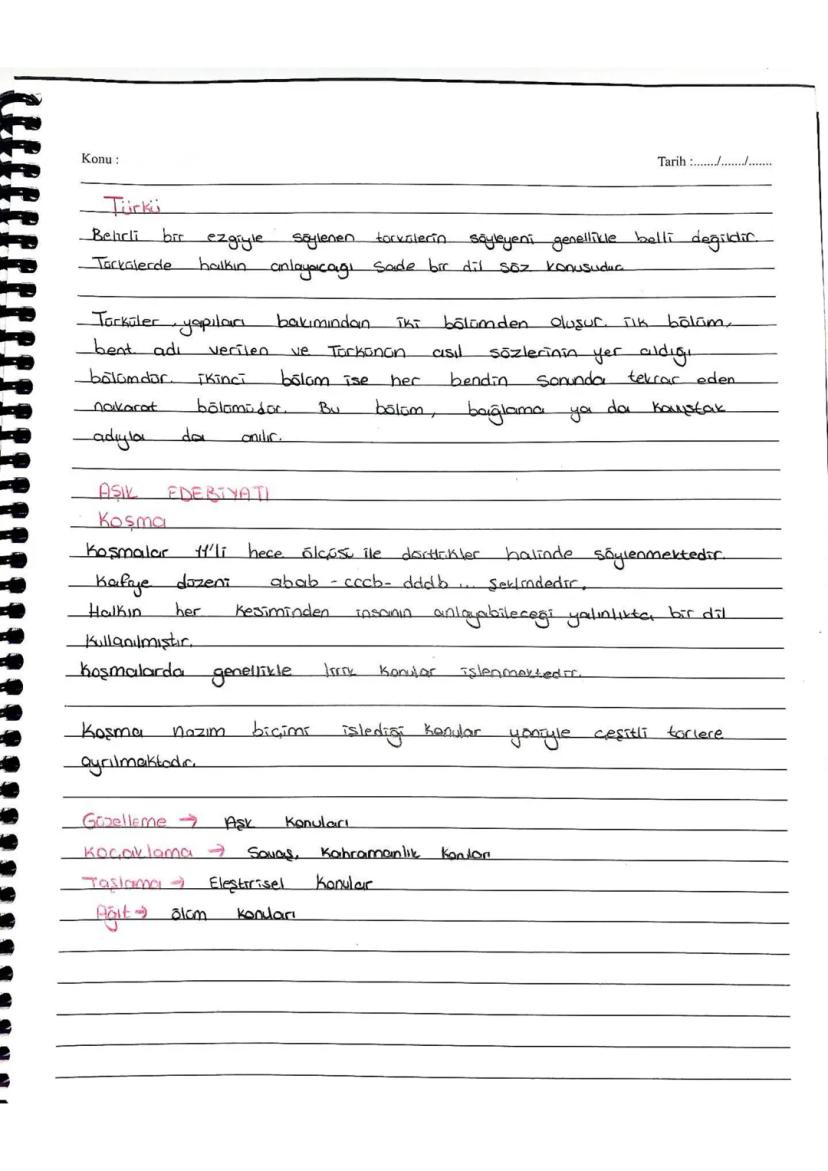 Konu :
Tarih :....../......./.......
Türkü
Belirli bir ezgiyle söylenen türkülerin söyleyeni genellikle belli değildir.
Türkülerde halkın anlayacağı sade bir dil söz konusudur.
Türküler, yapıları bakımından iki bölümden oluşur. İlk bölüm,
bent adı verilen ve Türkünün asıl sözlerinin yer aldığı
bölümdür. İkinci bölüm ise her bendin sonunda tekrar eden
nakarat bölümüdür. Bu bölüm, bağlama ya da kavuştak
adıyla da anılır.
AŞIK EDEBİYATI
Koşma
Koşmalar 11'li hece ölçüsü ile dörtlükler halinde söylenmektedir.
Kafiye düzeni abab - cccb - dddb ... şeklindedir.
Halkın her kesiminden insanın anlayabileceği yalınlıkta bir dil
kullanılmıştır.
Koşmalarda genellikle lirik konular işlenmektedir.
Koşma nazım biçimi işlediği konular yönüyle çeşitli türlere
ayrılmaktadır.
Güzelleme → Aşk Konuları
Koçaklama → Savaş, Kahramanlık Konuları
Taşlama → Eleştirisel Konular
Ağıt → ölüm konuları